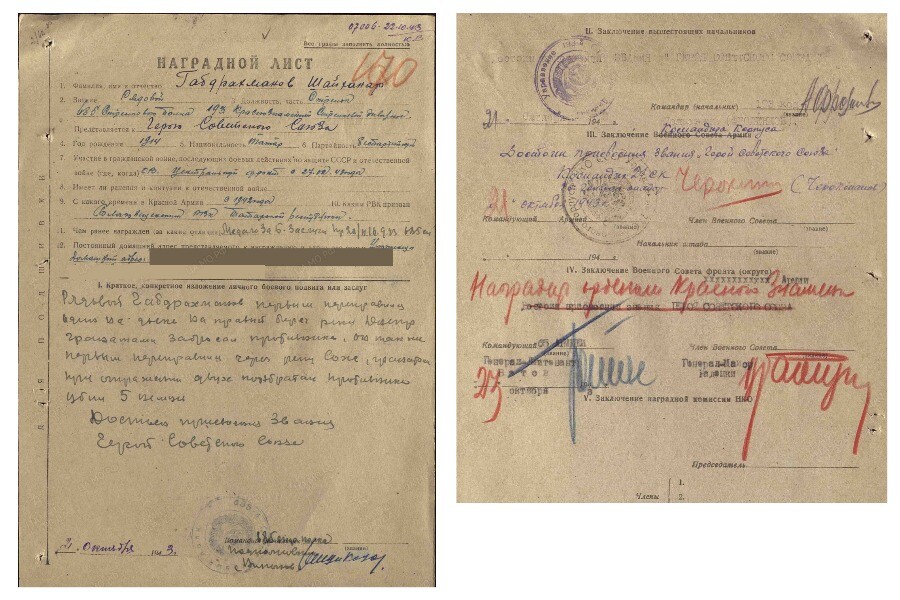 07006-22.10.43
Все графы заполнять полностью
НАГРАДНОЙ ЛИСТ
1. Фамилия, имя и отчество Габдрахманов Шайханар
2. Звание Рядовой Должность, часть Стрелок
685 Стрелкового полка 193 Краснознаменной Стрелковой дивизии
Представляется к Герою Советского Союза
4. Год рождения 1914 5. Национальность Татар 6. Партийность Беспартийный
7. Участие в гражданской войне, последующих боевых действиях по защите СССР и отечественной
войне (где, когда) Центральный фронт с 27.02.43 года
8. Имеет ли ранения и контузии в отечественной войне
9. С какого времени в Красной Армии с 1942 года 10. Каким РВК призван
РВК Татарской республики
11. Чем ранее награжден (за какие отличия) Медаль За Б-Заслуги
12. Постоянный домашний адрес
Домашний адрес:
I. Краткое, конкретное изложение личного боевого подвига или заслуг
Рядовой Габдрахманов первым переправился
на правый берег реки Днепр
гранатами забросал противника, он также
первым переправился через реку Сож, участвовал
при отражении двух контратак противника
убил 5 немцев
Достоин присвоения Звания
Герой Советского Союза
21 октября 1943.
Командир 685 стр. полка
подполковник
II. Заключение вышестоящих начальников
Командир (начальник)
21
194
(звание)
III. Заключение Военного Совета Армии
Командира Корпуса
Достоин присвоения звания „Герой Советского Союза"
Командир 27 СК
Черокманов (Черокманов)
октября 1943 г.
Командующий Армией
Член Военного Совета
(звание)
Начальник штаба
(звание)
194
IV. Заключение Военного Совета фронта (округа) Армии
Наградил орденом Красного Знамени
Достоин присвоения звания ГЕРОЙ СОВЕТСКОГО СОЮЗА
Командующий 65 АРМИЕЙ
(звание)
Генерал-Лейтенант
Батов
23 октября
Член Военного Совета
(звание)
Генерал-Майор
Радецкий
V. Заключение наградной комиссии НКО
Председатель
Члены
1.
2.